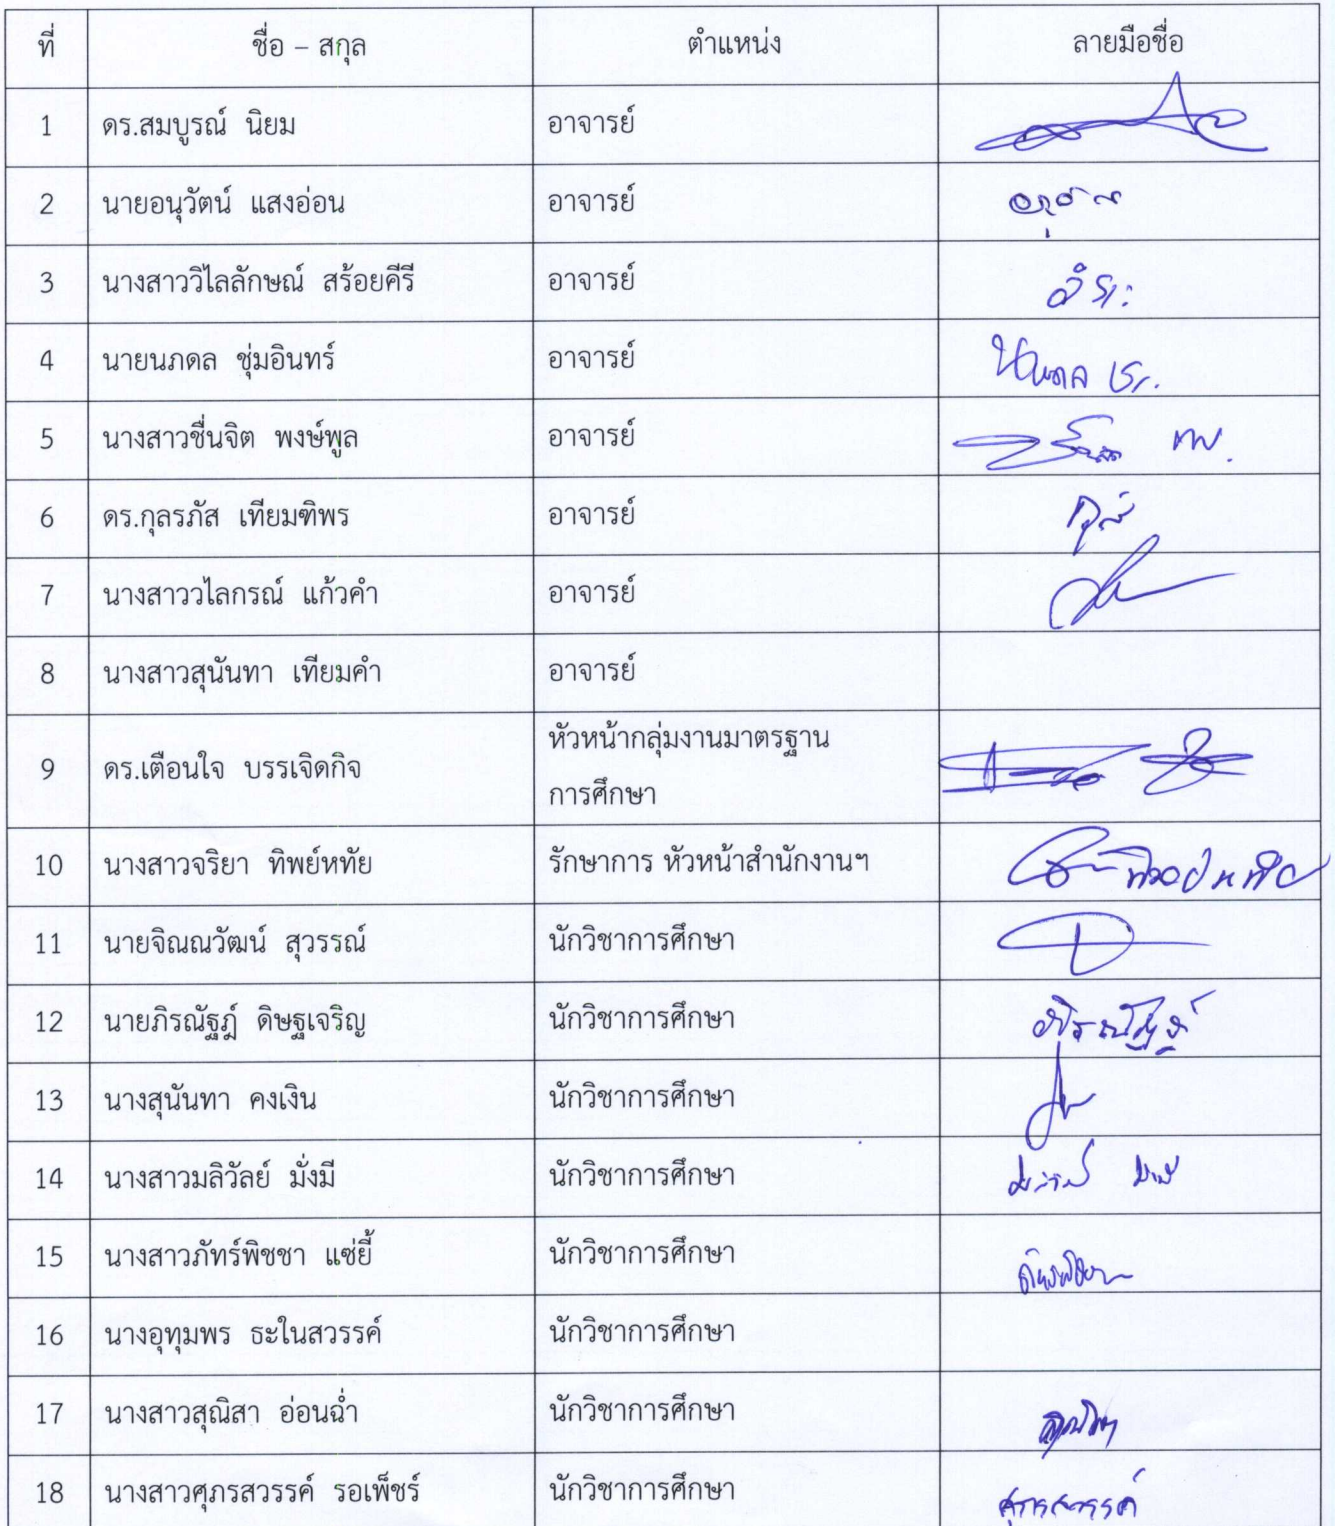 ที่ ชื่อ – สกุล ตำแหน่ง ลายมือชื่อ
1 ดร.สมบูรณ์ นิยม อาจารย์
2 นายอนุวัตน์ แสงอ่อน อาจารย์
3 นางสาววิไลลักษณ์ สร้อยคีรี อาจารย์
4 นายนภดล ชุ่มอินทร์ อาจารย์
5 นางสาวชื่นจิต พงษ์พูล อาจารย์
6 ดร.กุลรภัส เทียมฑิพร อาจารย์
7 นางสาววไลกรณ์ แก้วคำ อาจารย์
8 นางสาวสุนันทา เทียมคำ อาจารย์
9 ดร.เตือนใจ บรรเจิดกิจ หัวหน้ากลุ่มงานมาตรฐาน
การศึกษา
10 นางสาวจริยา ทิพย์หทัย รักษาการ หัวหน้าสำนักงานฯ
11 นายจิณณวัฒน์ สุวรรณ์ นักวิชาการศึกษา
12 นายภิรณัฐฎ์ ดิษฐเจริญ นักวิชาการศึกษา
13 นางสุนันทา คงเงิน นักวิชาการศึกษา
14 นางสาวมลิวัลย์ มั่งมี นักวิชาการศึกษา
15 นางสาวภัทร์พิชชา แซ่ยี้ นักวิชาการศึกษา
16 นางอุทุมพร ธะในสวรรค์ นักวิชาการศึกษา
17 นางสาวสุณิสา อ่อนฉ่ำ นักวิชาการศึกษา
18 นางสาวศุภรสวรรค์ รอเพ็ชร์ นักวิชาการศึกษา ศุภรสวรรค์